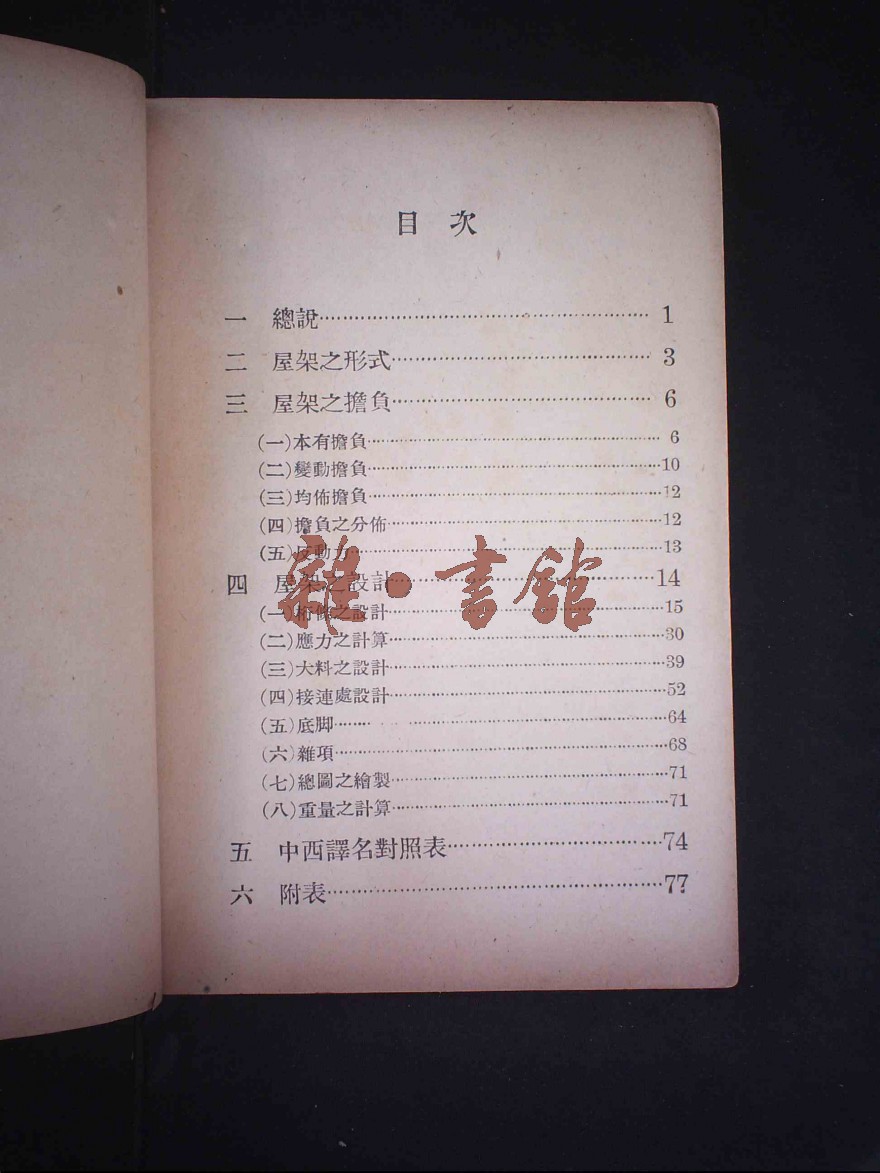 目次
一 總說 1
二 屋架之形式 3
三 屋架之擔負 6
(一)本有擔負 6
(二)變動擔負 10
(三)均佈擔負 12
(四)擔負之分佈 12
(五)反動力 13
四 屋架之設計 14
(一)桁條之設計 15
(二)應力之計算 30
(三)大料之設計 39
(四)接連處設計 52
(五)底脚 64
(六)雜項 68
(七)總圖之繪製 71
(八)重量之計算 71
五 中西譯名對照表 74
六 附表 77
雜·書館